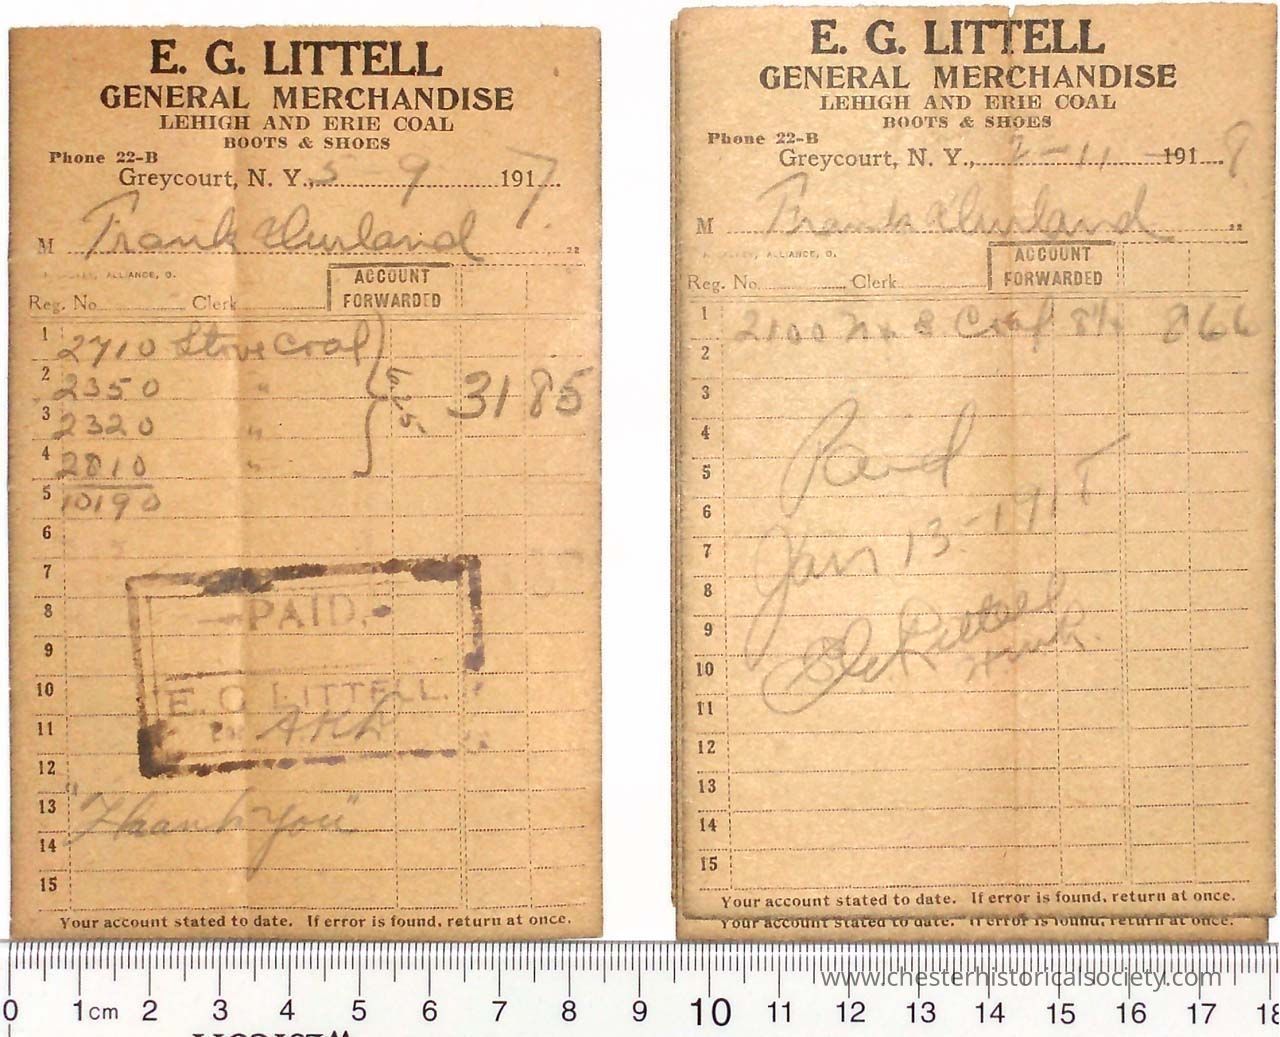 E. G. LITTELL
GENERAL MERCHANDISE
LEHIGH AND ERIE COAL
BOOTS & SHOES
Phone 22-B
Greycourt, N. Y., 5 9 1917
M Frank Durland
22
ALLIANCE, O.
ACCOUNT
FORWARDED
Reg. No. Clerk
1 2710 Stove Coal
2 2350 "
3 2320 "
4 2810 "
6.25 31 85
5 10190
6
7
8 PAID.
9
10 E. G. LITTELL.
11
12
13 "Thank You"
14
15
Your account stated to date. If error is found, return at once.
E. G. LITTELL
GENERAL MERCHANDISE
LEHIGH AND ERIE COAL
BOOTS & SHOES
Phone 22-B
Greycourt, N. Y., 2-11 -191
M Frank Durland
22
ALLIANCE, O.
ACCOUNT
FORWARDED
Reg. No. Clerk
1 2100 Coal 8 1/4 8 66
2
3
4 Paid
5
6 Jan 13-191
7
8
9 Littell
10
11
12
13
14
15
Your account stated to date. If error is found, return at once.
Your account stated to date. If error is found, return at once.
www.chesterhistoricalsociety.com
0 1cm 2 3 4 5 6 7 8 9 10 11 12 13 14 15 16 17 18